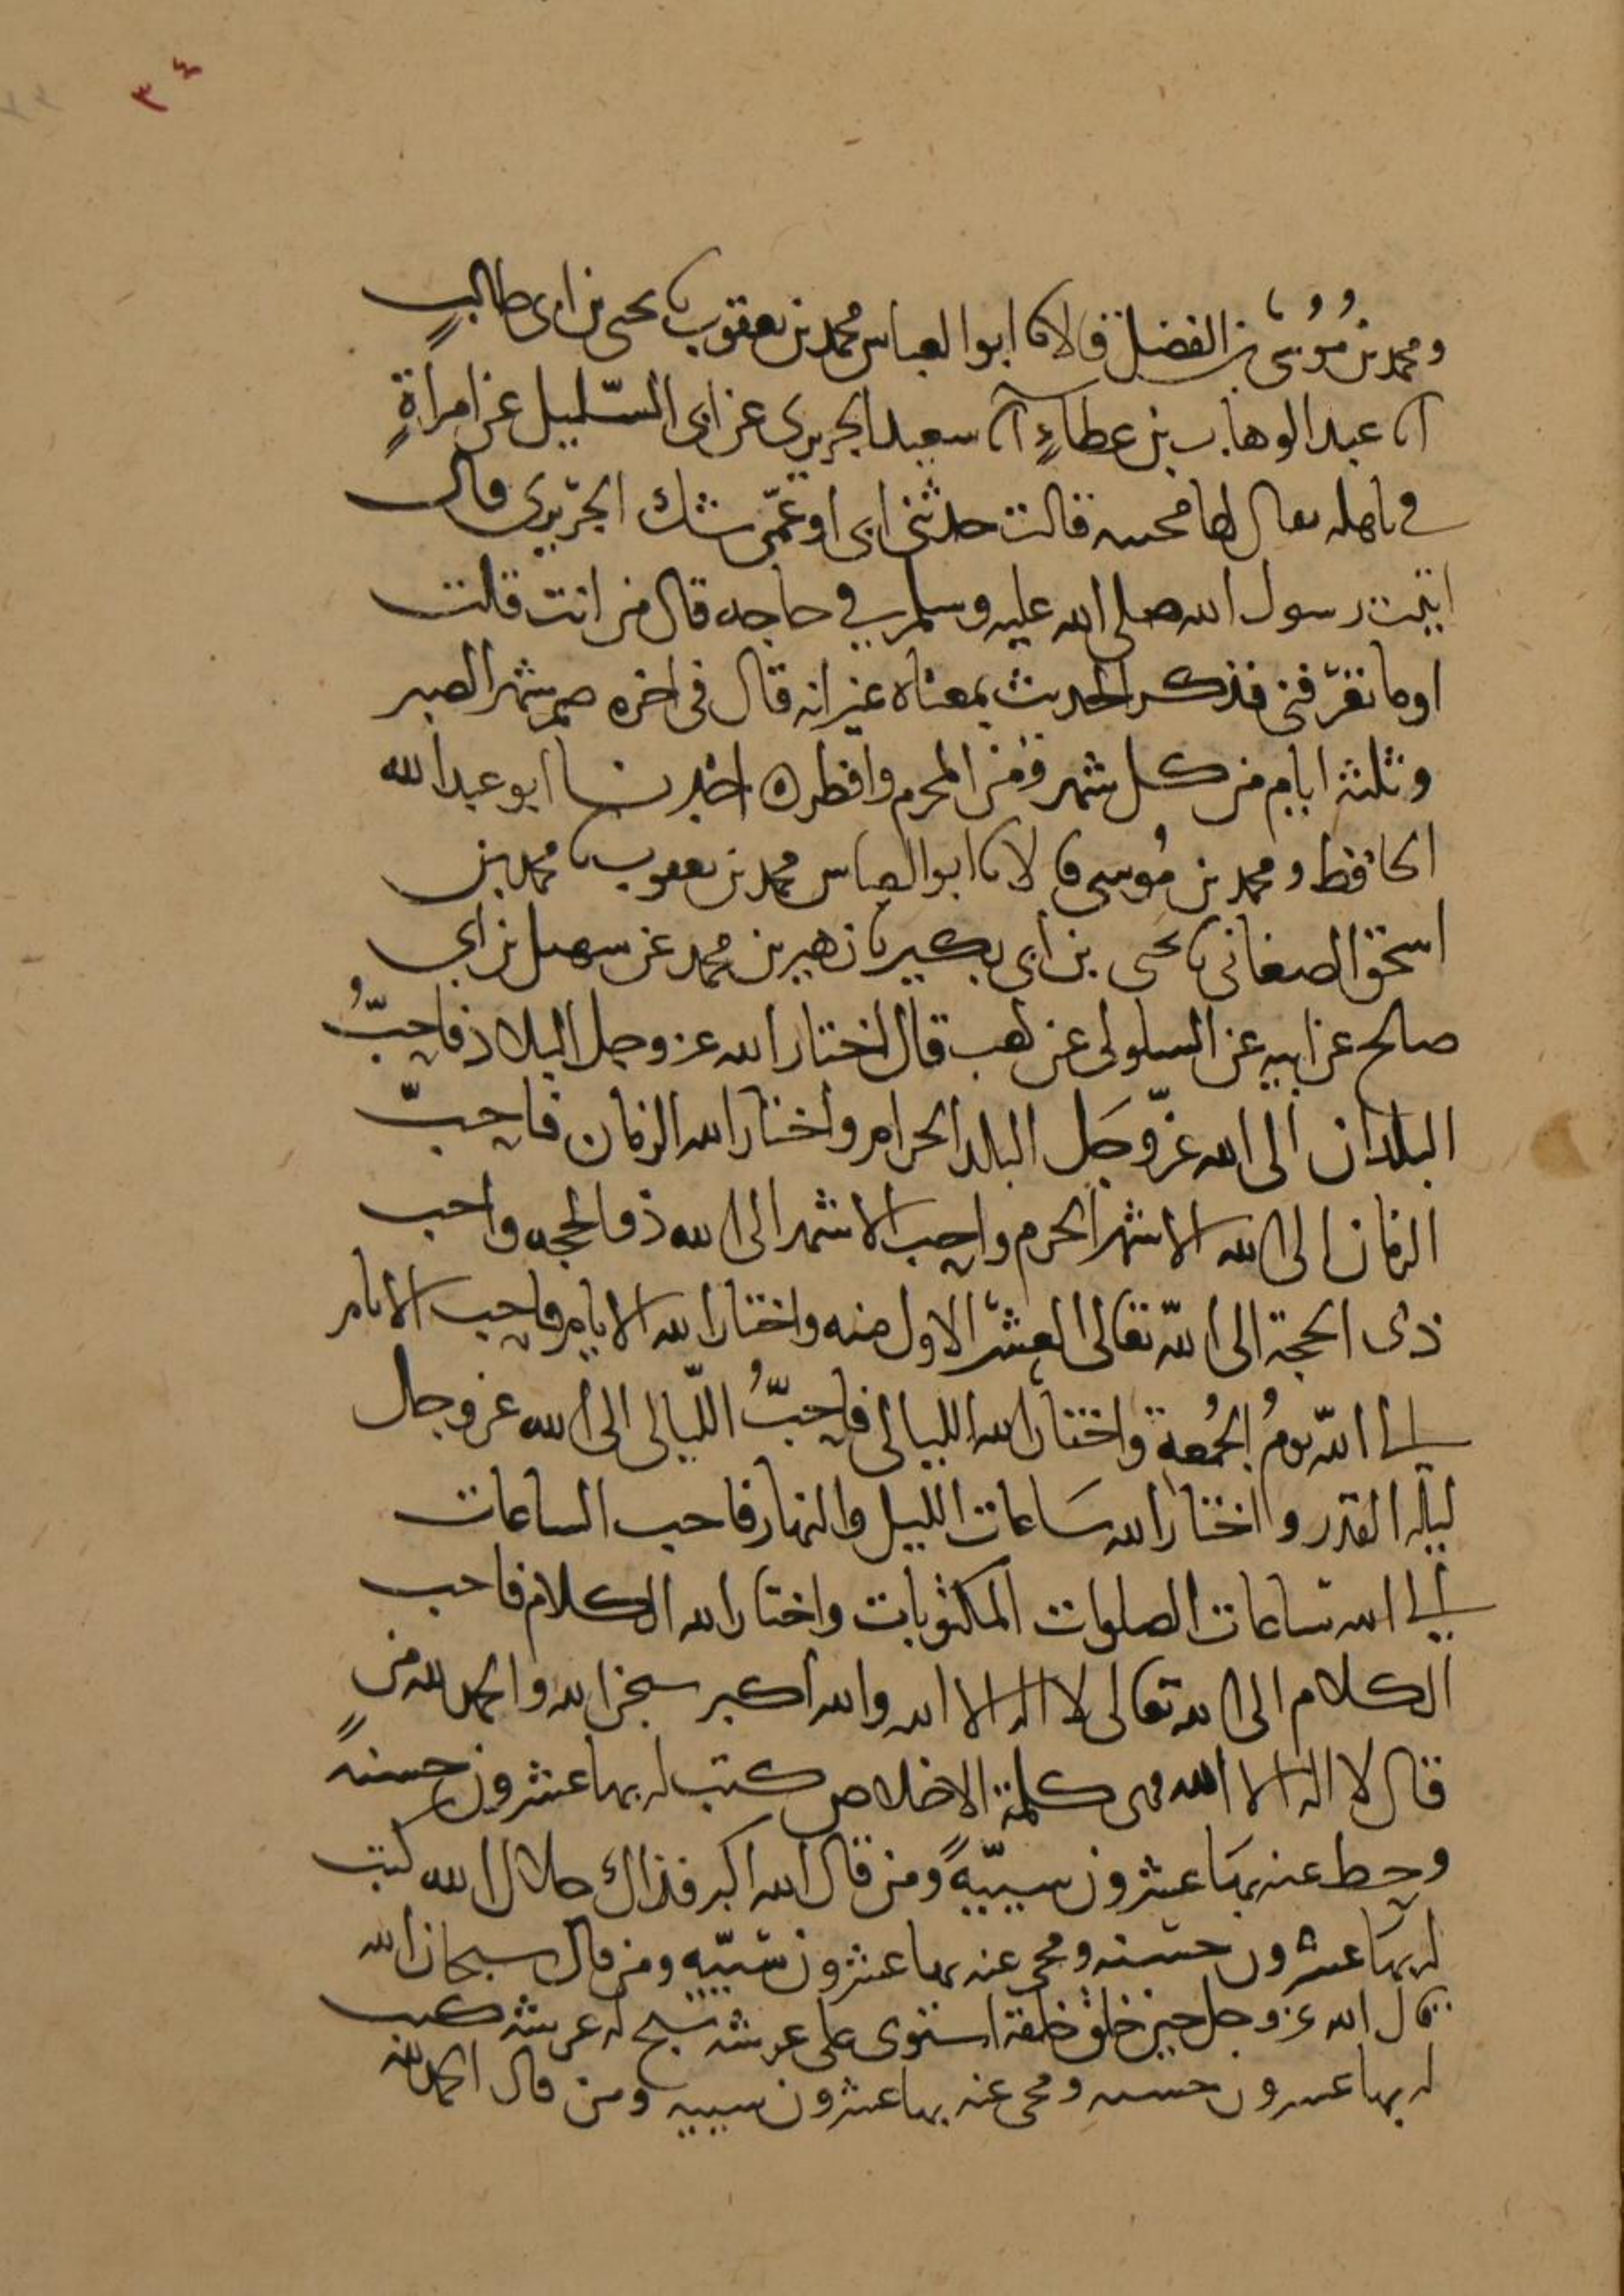 ٣٤
ومحمد بن مُوُسَى بن الفضل قالا نا ابوا لعباس محمد بن يعقوب نا يحيى بن ابي طالبٍ
انا عبد الوهاب بن عطاءٍ انا سعيد الجريري عن ابي السّليل عن امراةٍ
في باهله يقال لها محيبه قالت حدثني ابي او عمّي شك الجريري قال
اتيت رسول الله صلى الله عليه وسلم في حاجه قال من انت قلت
اوما تعرّفني فذكر الحديث بمعناه غير انه قال في اخره صم شهر الصبر
وثلثة ايام من كل شهر وُمن المحرم وافطر ه اخبرنا ابو عبد الله
الحافظ ومحمد بن مُوسى قالا نا ابوا لعباس محمد بن يعقوب نا محمد بن
اسحق الصغاني نا يحيى بن ابي بكير نا زهير بن محمد عن سهيل بن ابي
صالح عن ابيه عن السلولي عن كعب قال اختار الله عز وجل البلاد فاحبُّ
البلدان الى الله عزّ وجَل البلد الحرام واختار الله الزمان فاحبّ
الزمان الى الله الاشهر الحرم واحب الاشهر الى الله ذو الحجه واحب
ذى الحجة الى اللّه تعالى العشر الاول منه واختار الله الايام فاحب الايام
الى اللّه يومُ الجُمعة واختار الله الليالي فاحبُّ اللّيالي الى الله عز وجل
ليله القدر واختار الله سَاعات الليل والنهار فاحب الساعات
الى الله ساعات الصلوات المكتوبات واختار الله الكلام فاحب
الكلام الى الله تعالى لا اله الا الله والله اكبر سبحن الله والحمد لله من
قال لا اله الا الله فهي كلمة الاخلاص كتب له بها عشرون حسنهً
وحط عنه بهَا عشرون سييّهً ومن قال الله اكبر فذاك جلال الله كتب
له بهَا عشرون حسنه ومحي عنه بها عشرون سيّيه ومن قال سبحان الله
قال الله عز وجل حين خلق خلقه استوى على عرشه سبح له عرشه كتب
له بها عشرون حسنه ومحي عنه بها عشرون سييه ومن قال الحمد لله